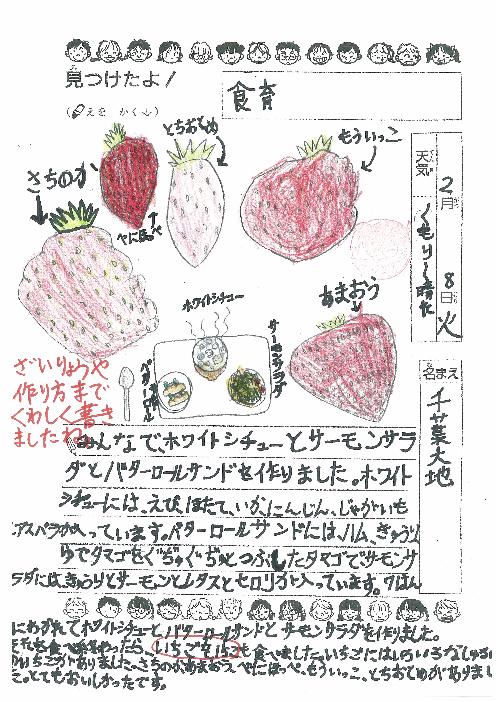 見つけたよ!
(えを かく)
食育
天気
2月8日火
くもり〜晴れ
名まえ
千葉大地
さちのか
べにほっぺ
とちおとめ
もういっこ
あまおう
ホワイトシチュー
サーモンサラダ
ざいりょうや
作り方まで
くわしく書き
ましたね。
みんなで、ホワイトシチューとサーモンサラ
ダとバターロールサンドを作りました。ホワイト
シチューには、えび、ほたて、いか、にんじん、じゃがいも
アスパラが入っています。バターロールサンドには、ハム、きゅうり
ゆでタマゴをぐちゅぐちゅとつぶしたタマゴでサーモンサ
ラダには、きゅうりとサーモンとレタスとセロリが入っています。7はん
にわかれてホワイトシチューとバターロールサンドとサーモンサラダを作りました。
いちごを も食べました。いちごにはいろいろなしゅるい
のいちごがありました。さちのかあまおうべにほっぺ、もういっこ、とちおとめがありまし
た。とてもおいしかったです。